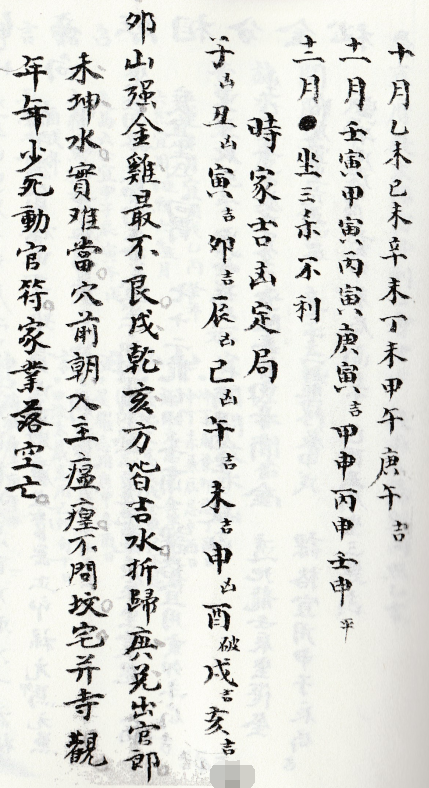 十月乙未己未辛未丁未甲午庚午吉
十一月壬寅甲寅丙寅庚寅吉甲申丙申壬申平
十二月●坐三杀不利
時家吉凶定局
子凶丑凶寅吉卯吉辰凶巳凶午吉未吉申凶酉破戌吉亥吉
卯山强金雞最不良戌乾亥方皆吉水折歸庚兑出官郎
未坤水實难當穴前朝入主瘟㾮不問坟宅并寺觀
年年少死動官符家業落空亡